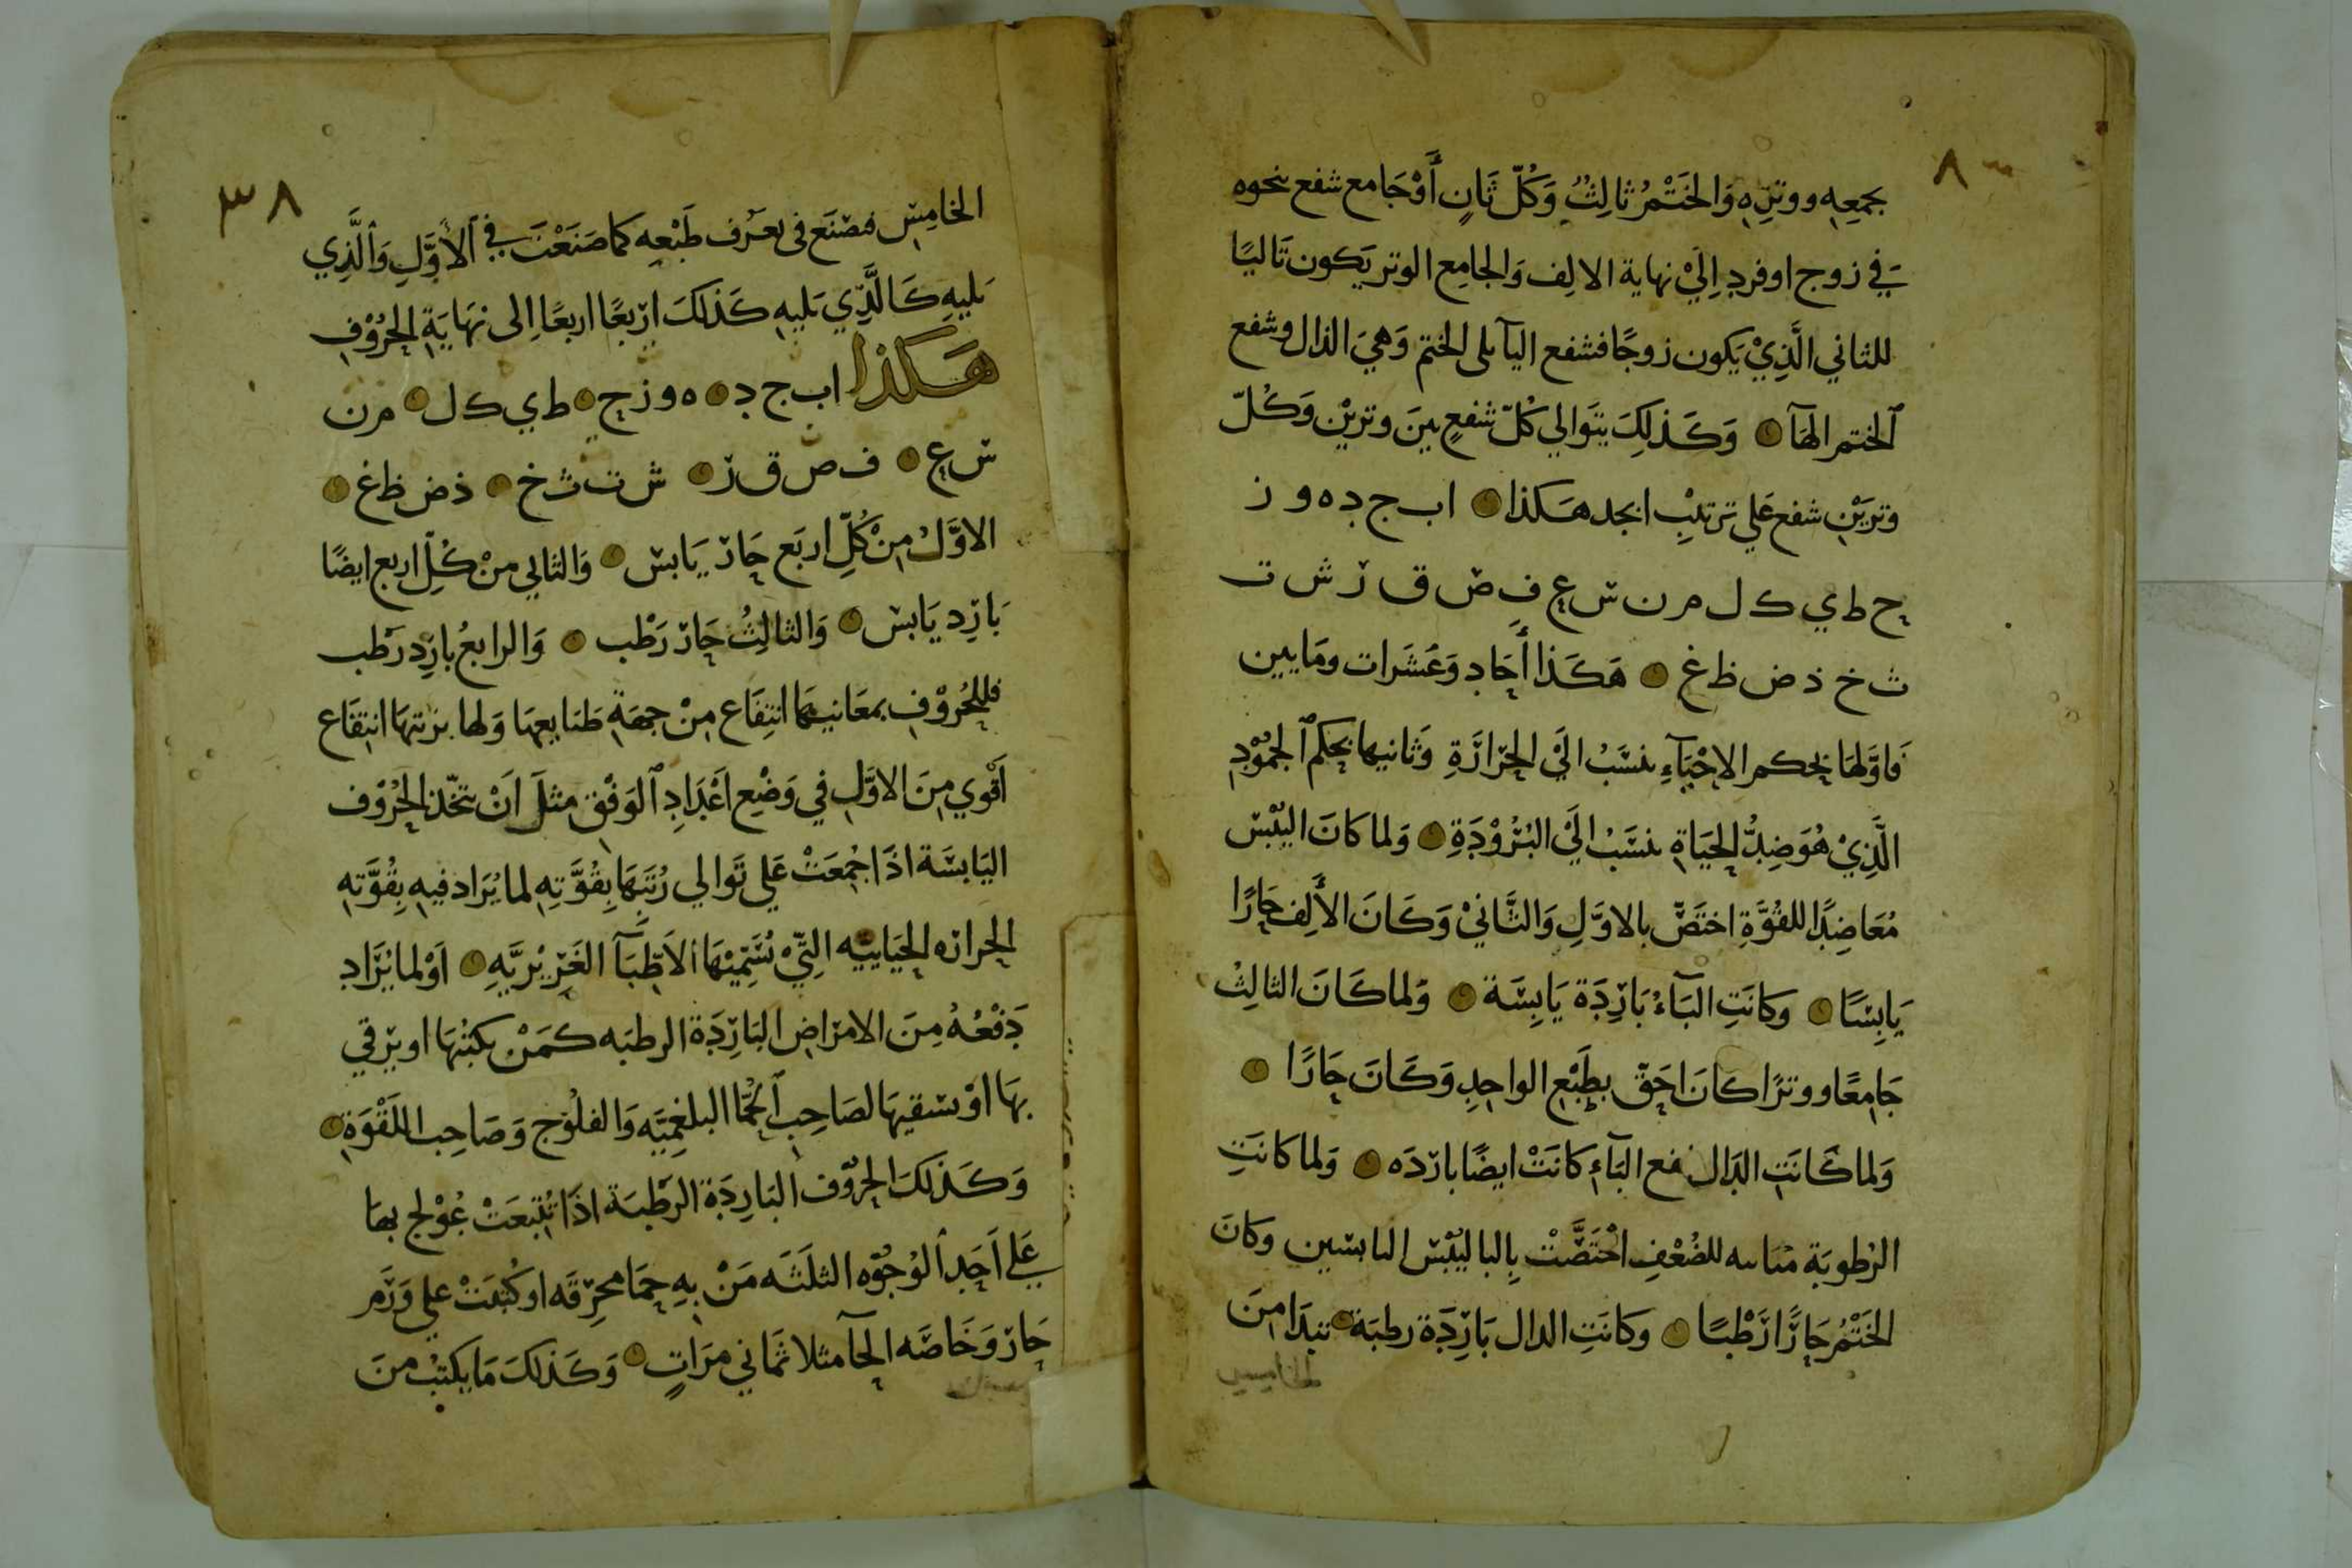 ٨
بجمعه ووتره والختم ثالث وكل ثان أو جامع شفع نحوه
في زوج او فرد الى نهاية الالف والجامع الوتر يكون تاليا
للثاني الذي يكون زوجا فشفع اليآ يلى الختم وهي الدال وشفع
الختم الهآ وكذلك يتوالي كل شفع بين وترين وكل
وترين شفع علي ترتيب ابجد هكذا ا ب ج د ه و ز
ح ط ي ك ل م ن س ع ف ص ق ر ش ت
ث خ ذ ض ظ غ هكذا أحاد وعشرات ومايين
فاولها بحكم الاحيآء ينسب الي الحرارة وثانيها بحكم الجمود
الذي هو ضد الحياة ينسب الي البرودة ولما كان اليبس
معاضدا للقوة اختص بالاول والثاني وكان الألف حارا
يابسا وكانت البآء باردة يابسة ولما كان الثالث
جامعا ووترا كان احق بطبع الواحد وكان حارا
ولما كانت الدال شفع البآء كانت ايضا بارده ولما كانت
الرطوبة للضعف اختصت وكان
الختم حارا رطبا وكانت الدال باردة رطبة تبدا من
الخامس
٣٨
الخامس فتصنع فى تعرف طبعه كما صنعت في الأول والذي
يليه كالذي يليه كذلك اربعا اربعا الى نهاية الحروف
هكذا ا ب ج د ه و ز ح ط ي ك ل م ن
س ع ف ص ق ر ش ت ث خ ذ ض ظ غ
الاول من كل اربع حار يابس والثاني من كل اربع ايضا
بارد يابس والثالث حار رطب والرابع بارد رطب
فللحروف بمعانيها انتفاع من جهة طبايعها ولها انتفاع
أقوي من الاول في وضع اعداد الوفق مثل ان تتخذ الحروف
اليابسة اذا اجمعت علي توالي رتبها بقوته لما يراد فيه بقوته
الحراره الحياييه التي تسميها الاطبآ الغريزيه او لما يراد
دفعه من الامراض الباردة الرطبه كمن يكتبها او يرقي
بها او يسقيها لصاحب الحما البلغميه والفلوج وصاحب اللقوة
وكذلك الحروف الباردة الرطبة اذا تتبعت عولج بها
علي احد الوجوه الثلثه من به حما محرقه او كتبت علي ورم
حار وخاصه الحآ مثلا ثماني مرات وكذلك ما يكتب من